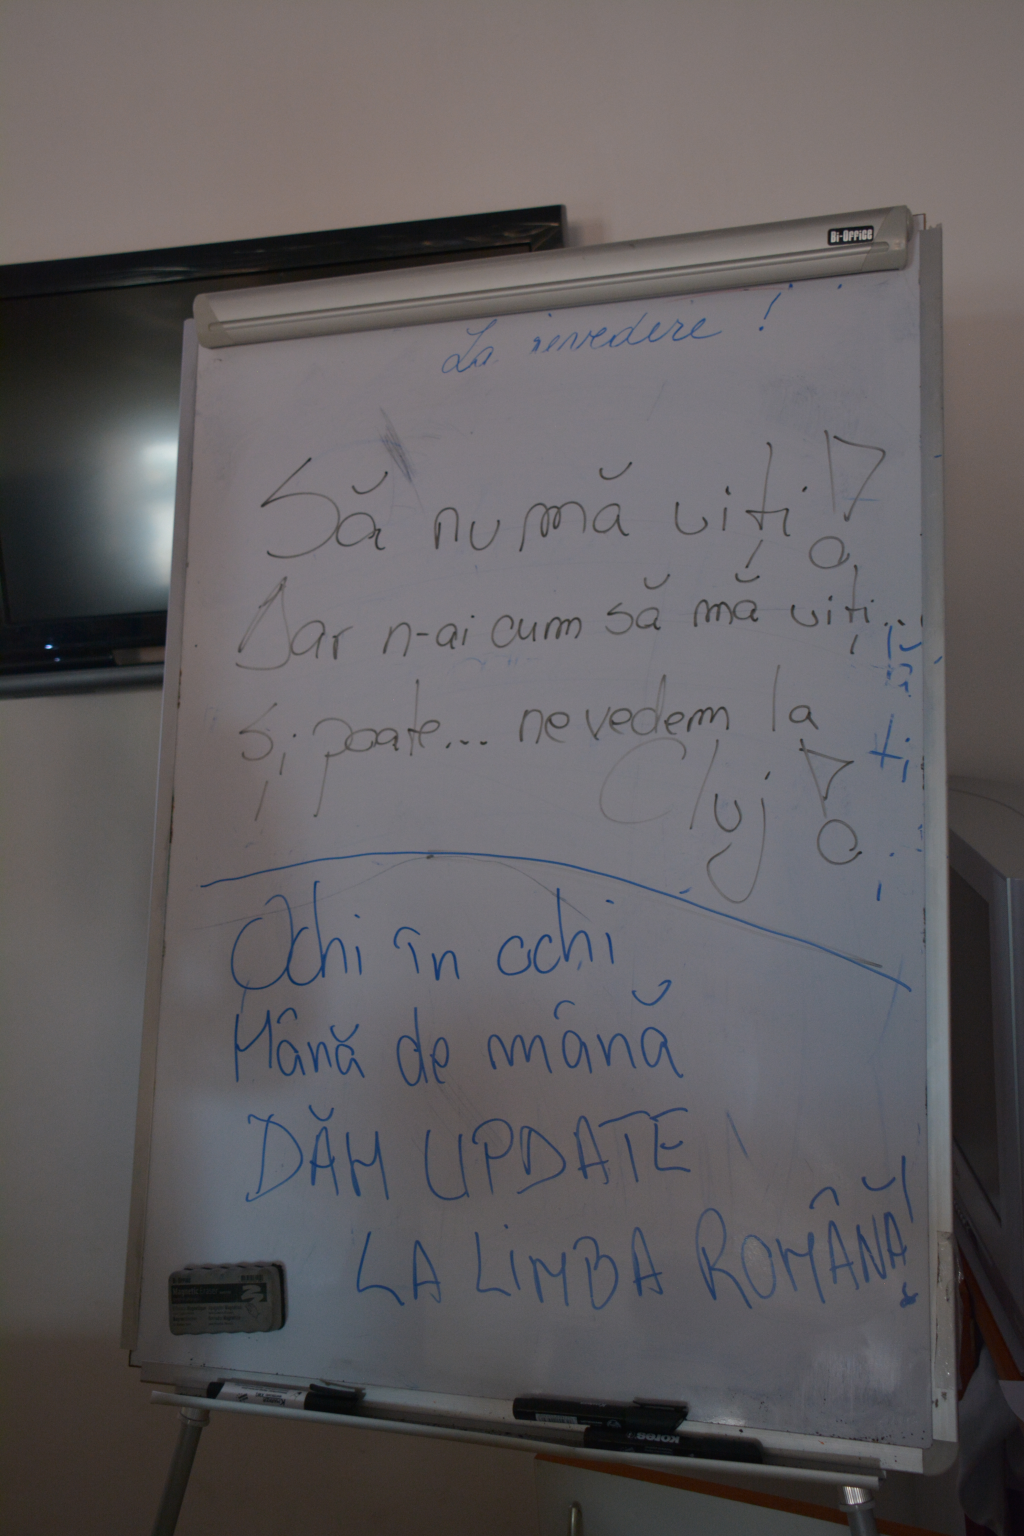 Bi-Office
La revedere !
Să nu mă uiți!
Dar n-ai cum să mă uiți...
Și poate... ne vedem la
Cluj!
Ochi în ochi
Mână de mână
DĂM UPDATE
LA LIMBA ROMÂNĂ!
kores